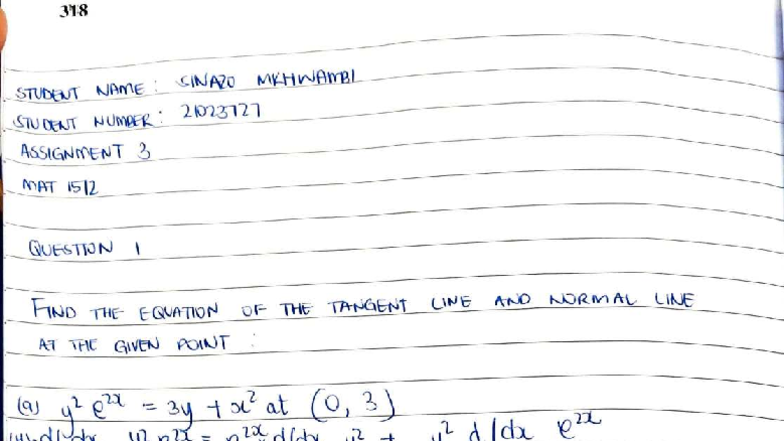 318
STUDENT NAME: SINAZO MKHWAMBI
STUDENT NUMBER: 21023727
ASSIGNMENT 3
MAT 1512
QUESTION 1
FIND THE EQUATION OF THE TANGENT LINE AND NORMAL LINE
AT THE GIVEN POINT :
(a) y² e²ˣ = 3y + x² at (0, 3)
y² e²ˣ = e²ˣ d/dx y² + y² d/dx e²ˣ